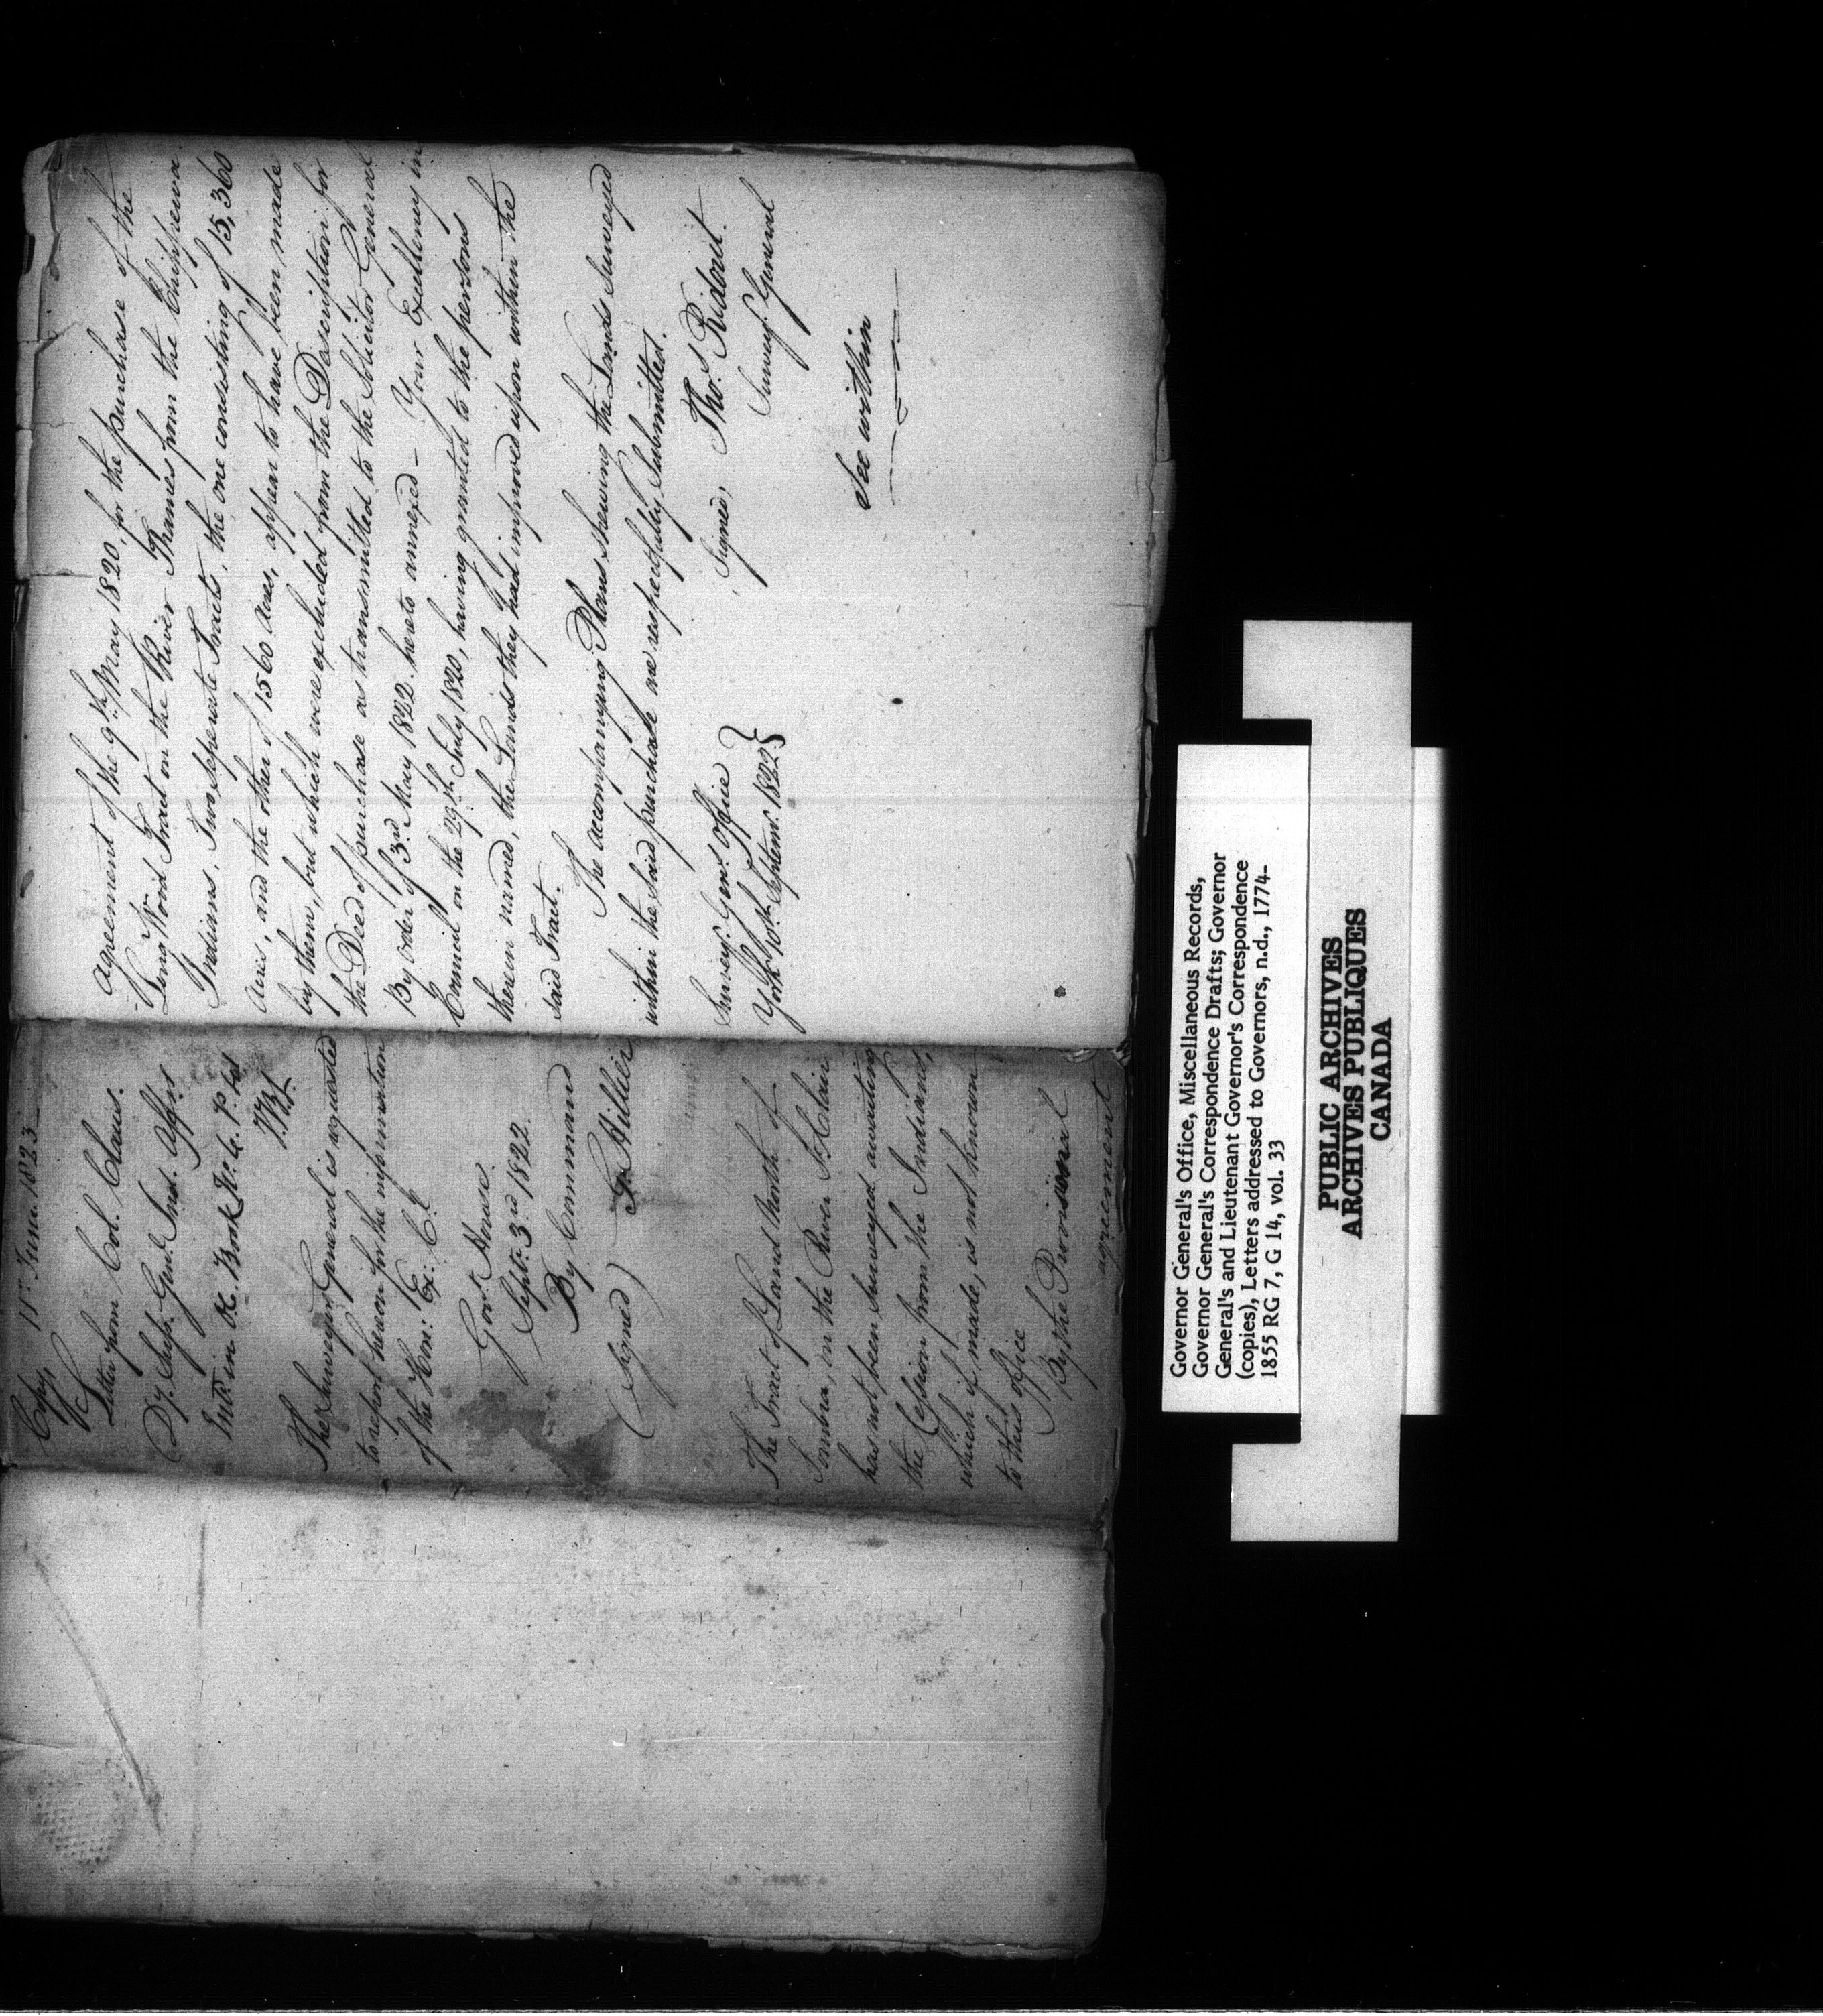 Copy 11th June 1823
Letter from Col. Claus.
Dy. Supt. Genl. Ind. Affrs.
Entd. in R. Book No. 6. P. 
The Surveyor General is requested
to report hereon for the information
of the Hon: Ex: Cl.
Govt. House
Septr. 3rd 1822.
By Command
(Signed) G. Hillier
The Tract of Land North of
Sombra, on the River St. Clair
has not been Surveyed awaiting
the Cession from the Indians,
which if made, is not known
to this office
By the Provisional
agreement
agreement of the 9th May 1820, for the purchase of the
Long Wood Tract on the River Thames from the Chippewa
Indians, Two seperate Tracts, the one consisting of 15,360
Acres, and the other of 1560 Acres, appear to have been made
by them, but which were excluded from the Description for
the Deed of purchase as transmitted to the Solicitor General
By order of 3rd May 1822 hereto annexed — Your Excellency in
Council on the 29th July 1820, having granted to the persons
therein named, the Lands they had improved upon within the
said Tract.
The accompanying Plans shewing the Lands Surveyed
within the said purchase are respectfully Submitted.
Signed, Thos. Ridout.
Survey. General
Survey. Genl. Office
York 10th Septemr. 1822.
See within
Governor General's Office, Miscellaneous Records,
Governor General's Correspondence Drafts; Governor
General's and Lieutenant Governor's Correspondence
(copies), Letters addressed to Governors, n.d., 1774-
1855 RG 7, G 14, vol. 33
PUBLIC ARCHIVES
ARCHIVES PUBLIQUES
CANADA